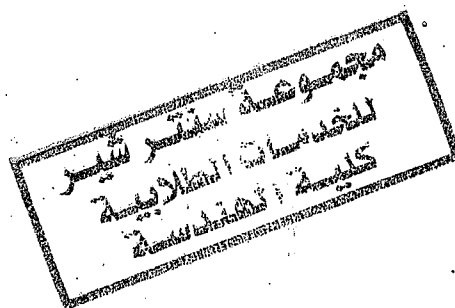 مجموعة سنتر فيير
للخدمات الطلابية
كلية الهندسة